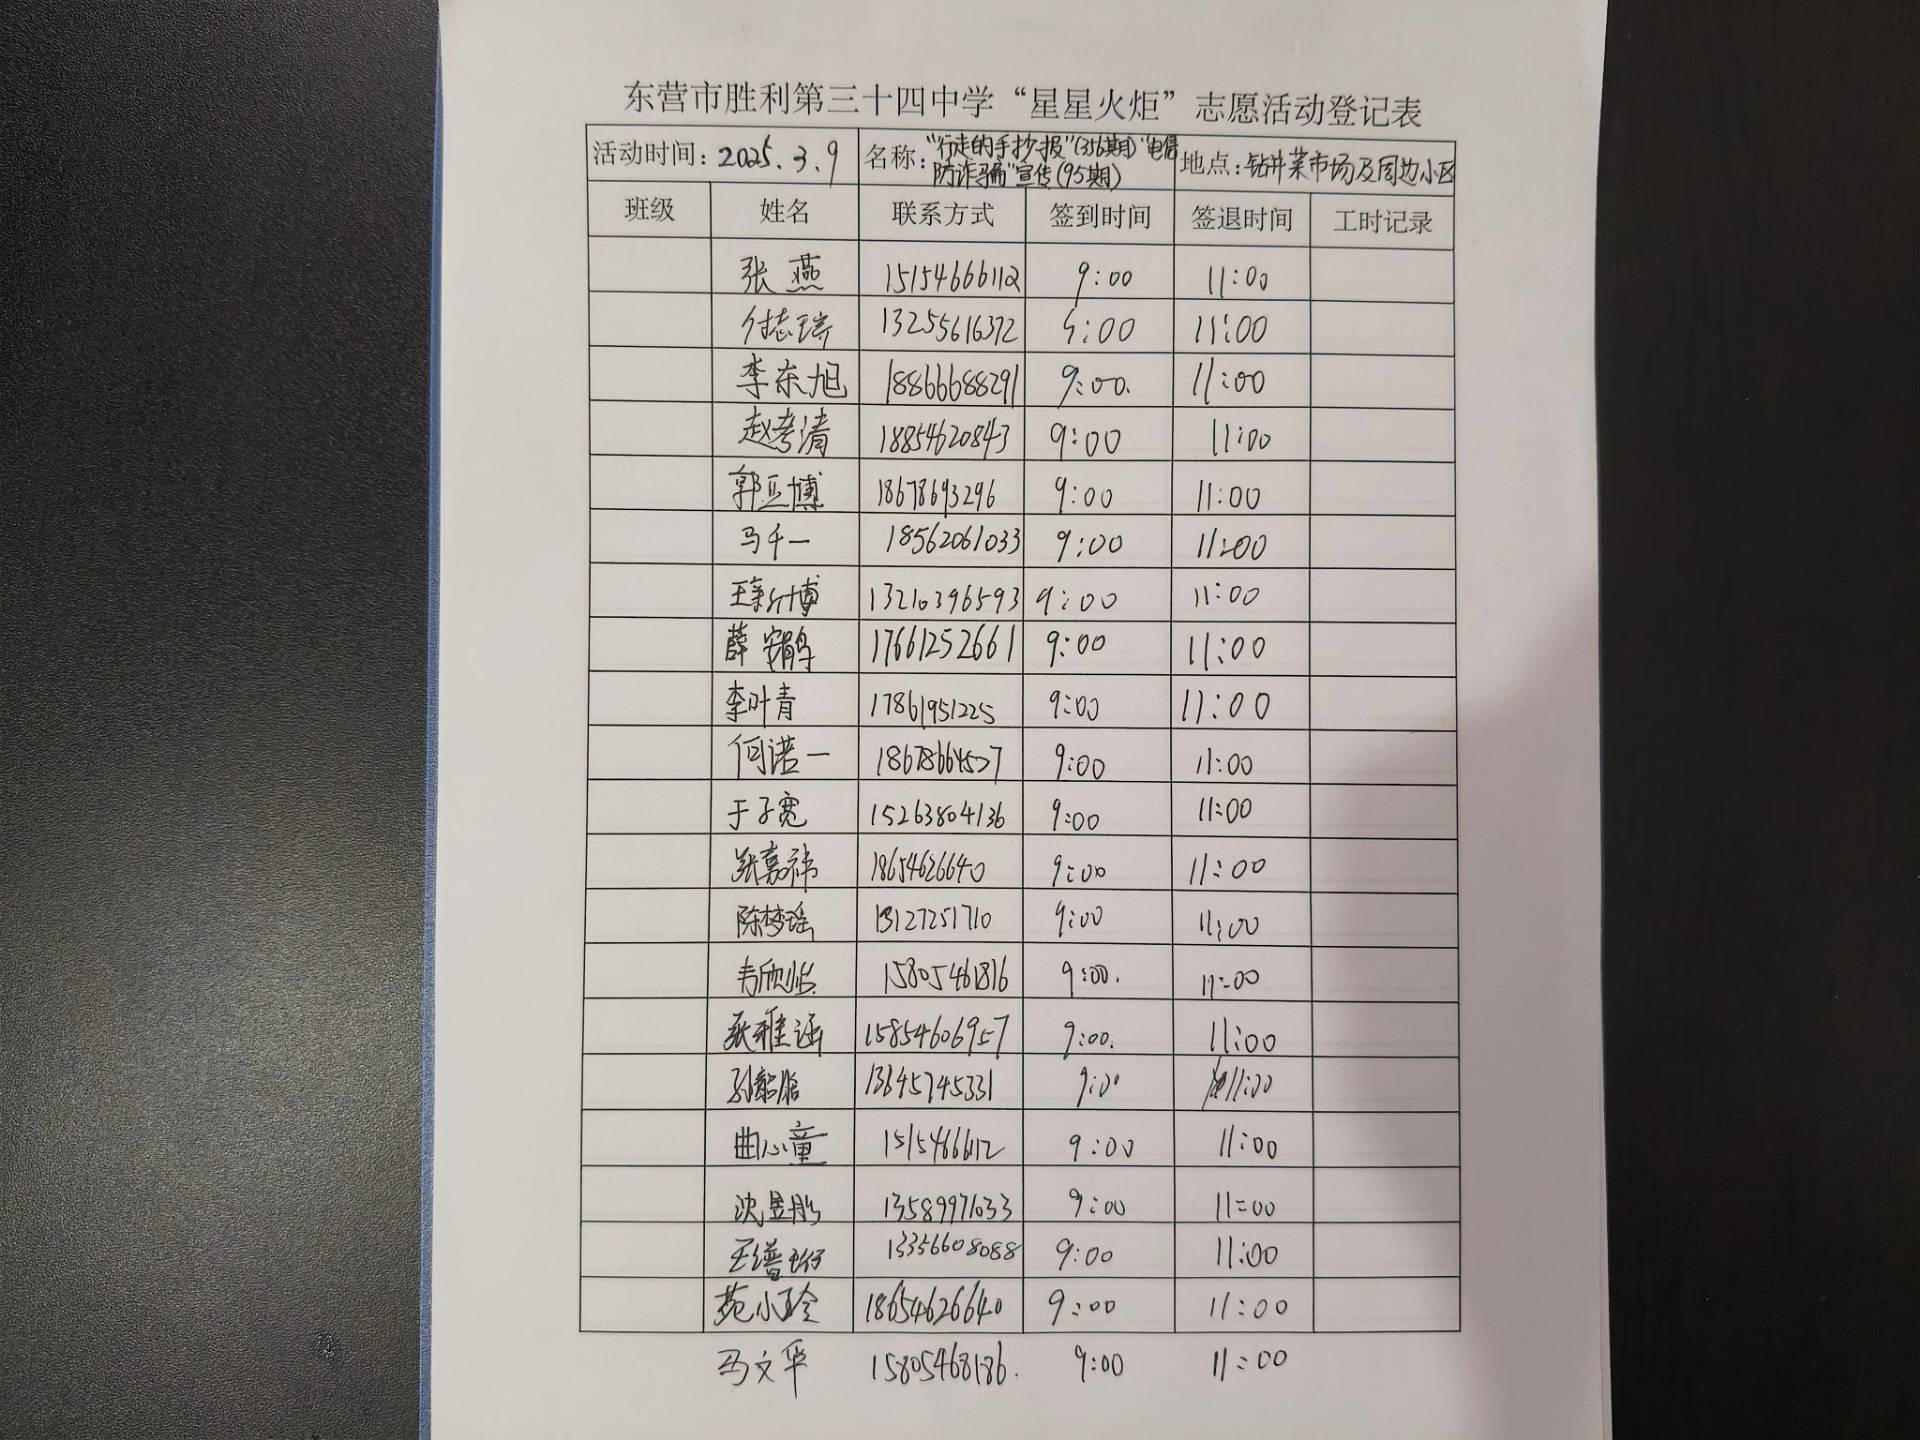 东营市胜利第三十四中学“星星火炬”志愿活动登记表
活动时间：2025.3.9 名称：“行走的手抄报”(356期)“电信防诈骗”宣传(95期) 地点：钻井菜市场及周边小区
班级 姓名 联系方式 签到时间 签退时间 工时记录
张燕 15154666112 9:00 11:00
付志瑞 13255616372 9:00 11:00
李东旭 18866688291 9:00. 11:00
赵考清 18854620843 9:00 11:00
郭亚博 18678693296 9:00 11:00
马千一 18562061033 9:00 11:00
王新博 13210396593 9:00 11:00
薛 17661252661 9:00 11:00
李叶青 17861951225 9:00 11:00
何诺一 18678664527 9:00 11:00
于子宽 15263804136 9:00 11:00
张嘉祎 18654626640 9:00 11:00
陈梦瑶 13127251710 9:00 11:00
韦欣 15805461816 9:00. 11:00
雅涵 15854606957 9:00. 11:00
13645745331 9:00 11:00
曲心童 9:00 11:00
沈昱彤 13589971033 9:00 11:00
王 13356608088 9:00 11:00
苑小玲 18654626640 9:00 11:00
马文华 15805468186. 9:00 11:00